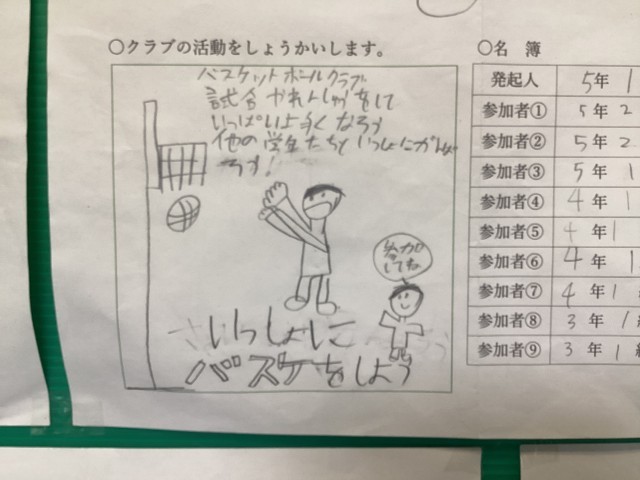 ○クラブの活動をしょうかいします。
バスケットボールクラブ
試合やれんしゅうをして
いっぱい上手くなろう
他の学生たちといっしょにがんば
ろう!
参加
してね
いっしょに
バスケをしよう
○名 簿
発起人 5年 1
参加者① 5年 2
参加者② 5年 2
参加者③ 5年 1
参加者④ 4年 1
参加者⑤ 4年 1
参加者⑥ 4年 1
参加者⑦ 4年 1
参加者⑧ 3年 1
参加者⑨ 3年 1組